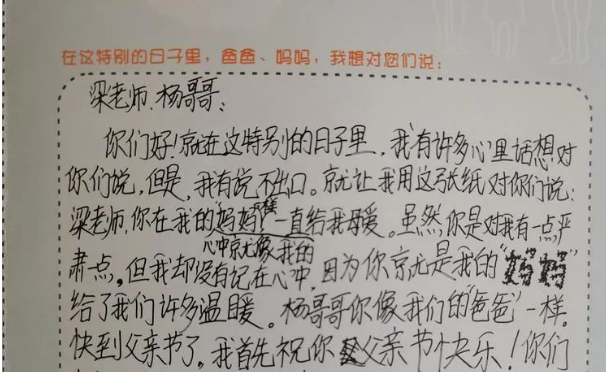 在这特别的日子里，爸爸、妈妈，我想对您们说：
梁老师、杨哥哥：
你们好！就在这特别的日子里，我有许多心里话想对
你们说，但是，我有说不出口。就让我用这张纸对你们说：
梁老师，你在我的“妈妈”一直给我母爱。虽然，你是对我有一点严
心中就像我的
肃一点，但我却没有记在心中，因为你就是我的“妈妈”
给了我们许多温暖。杨哥哥你像我们的“爸爸”一样。
快到父亲节了，我首先祝你父亲节快乐！你们